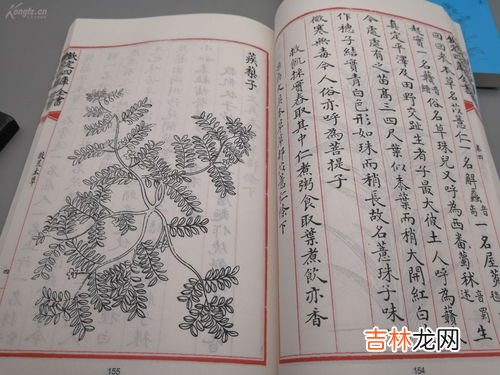 欽定四庫全書
卷四
回回米本草名薏苡仁一名解蠡音 一名屋菼音
起實一名贛音 俗名草珠兒又呼為西番蜀秫 生
真定平澤及田野交趾生者子最大彼土人呼為贛
今處處有之苗高三四尺葉似黍葉而稍大開紅白
作穗子結實青白色形如珠而稍長故名薏珠子味
微寒無毒今人俗亦呼為菩提子
救飢採實舂取其中仁煮粥食取葉煮飲亦香
本草草部薏苡仁條下
154
蒺藜子
欽定四庫全書
救荒本草
四
155
吉林龙网